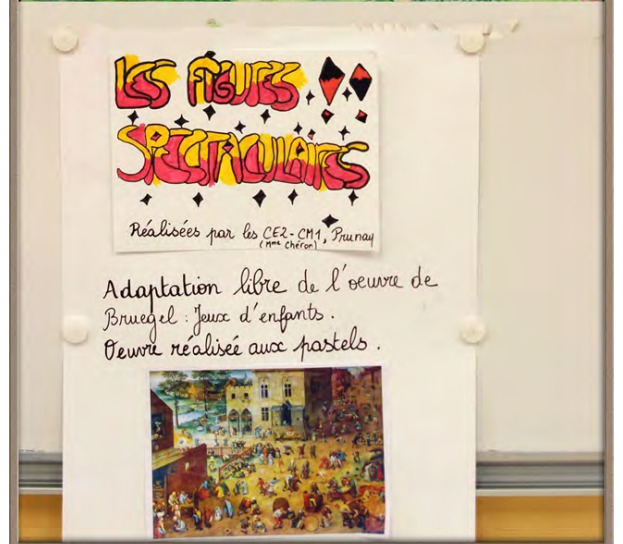 LES FIGURES
SPECTACULAIRES
Réalisées par les CE2-CM1, Prunay
(Mme Chéron)
Adaptation libre de l'oeuvre de
Bruegel : Jeux d'enfants.
Oeuvre réalisée aux pastels.